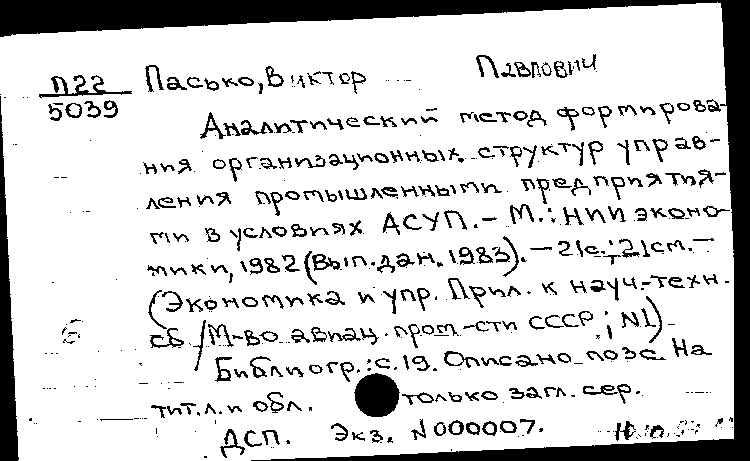 П22 Пасько, Виктор Павлович
5039
Аналитический метод формирова-
ния организационных структур управ-
ления промышленными предприятия-
ми в условиях АСУП. – М.: НИИ эконо-
мики, 1982 (Вып. дан. 1983). – 21с.; 21см. –
(Экономика и упр. Прил. к науч.-техн.
сб / М-во авиац. пром-сти СССР; N1)
Библиогр.: с.19. Описано по зс. На
тит. л. и обл. только загл. сер.
ДСП. Экз. N000007.